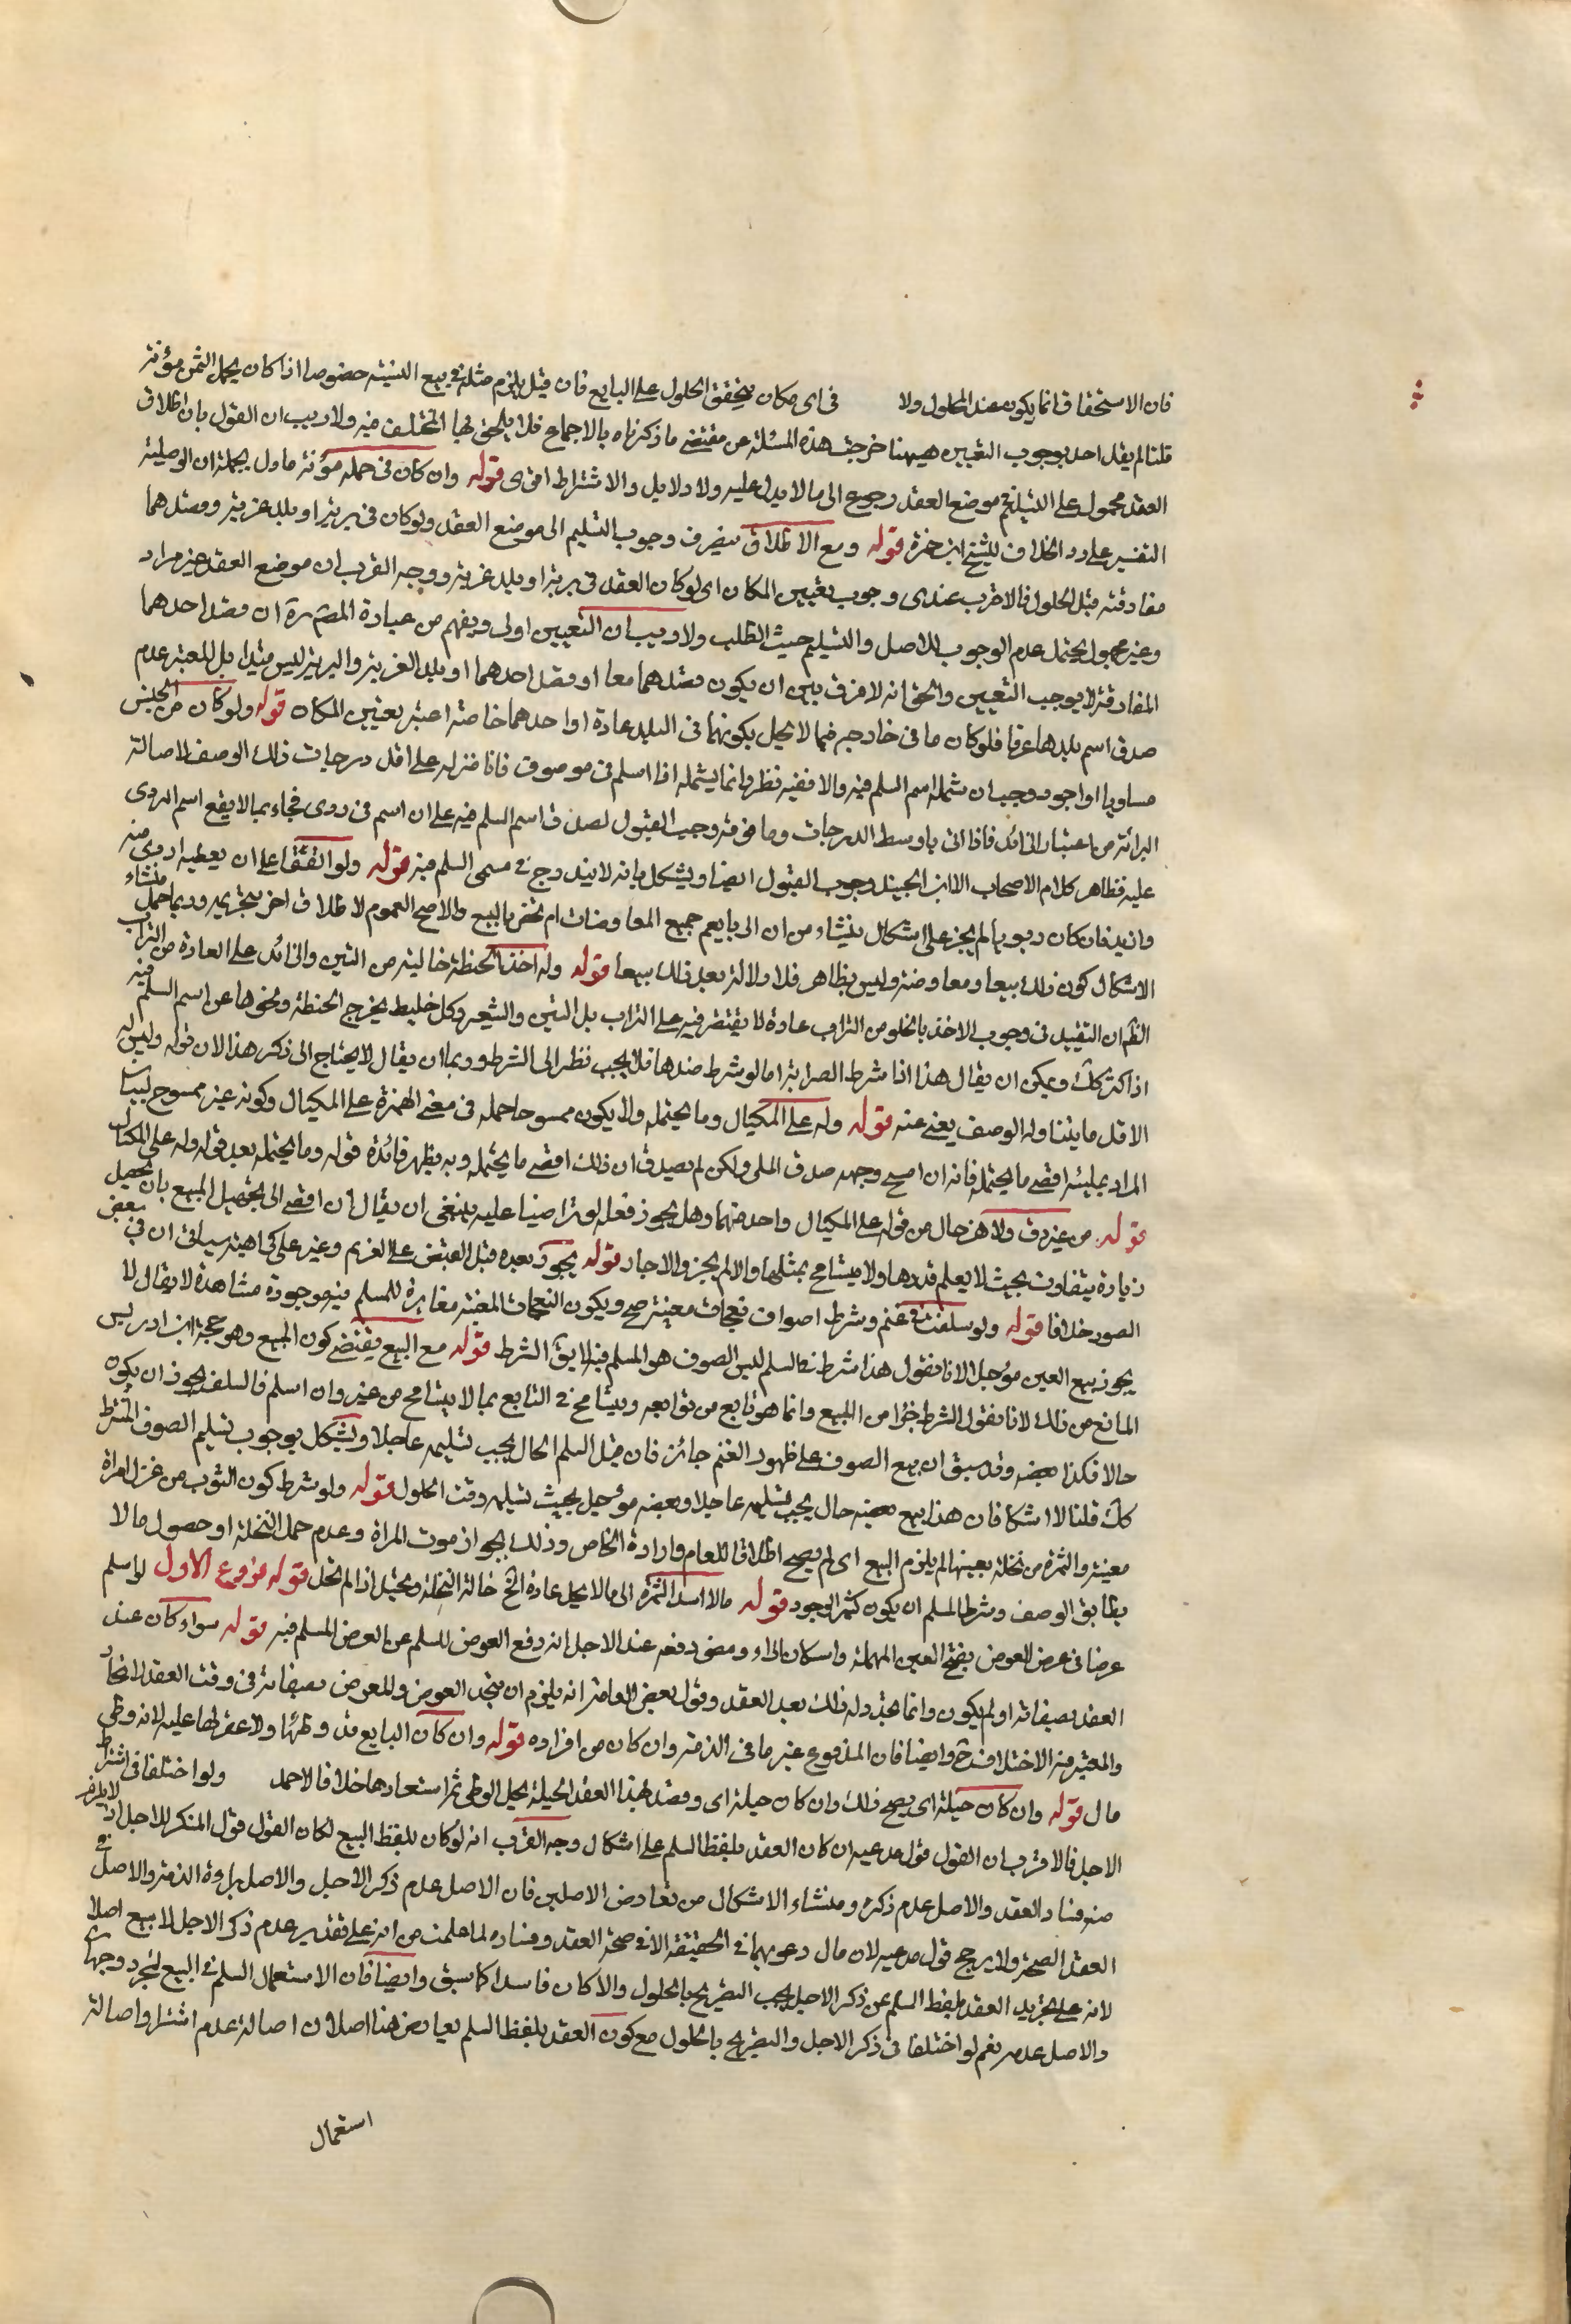 فان الاستحقاق انما يكون عند الحلول ولا في اى مكان يتحقق الحلول على البايع فان قيل يلزم مثله في بيع النسيئة خصوصا اذا كان يحمل الثمن مؤنة
قلنا لم يقل احد بوجوب التعيين هيهنا خرجت هذه المسئلة عن مقتضى ما ذكرناه بالاجماع فلا يلحق بها المختلف فيه ولا ريب ان القول بان اطلاق
العقد محمول على التسليم في موضع العقد رجوع الى ما لا يدل عليه ولا دلايل والاشتراط اقوى قوله وان كان في حمله مؤنة ما دل بجملة ان الوصلية
التفسير على رد الخلاف للشيخ ابن حمزة قوله ومع الاطلاق ينصرف وجوب التسليم الى موضع العقد ولو كان في برية او بلد غربة وقصدهما
مفارقته قبل الحلول فالاقرب عندى وجوب تعيين المكان اى لو كان العقد في برية او بلد غربة ووجه القرب ان موضع العقد غير مراد
وغيره مجهول يحتمل عدم الوجوب للاصل والتسليم حيث الطلب ولا ريب ان التعيين اولى ويفهم من عبارة المصره ان قصد احدهما
المفارقة لا يوجب التعيين والحق انه لا فرق بين ان يكون قصدهما معا او قصد احدهما او بلد الغربة والبرية ليس قيدا بل المعتبر عدم
صدق اسم بلدها عرفا فلو كان ما في خارجه فيما لا يحل بكونهما في البلد عادة او احدهما خاصة اعتبر تعيين المكان قوله ولو كان من الجنس
مساويا او اجود وجب ان شمله اسم السلم فيه والا ففيه نظر وانما يشمله اذا اسلم في موصوف فانا ننزله على اقل درجات ذلك الوصف لاصالة
البرائة من اعتبار الزائد فاذا اتى باوسط الدرجات وما فوقه وجب القبول لصدق اسم السلم فيه على ان اسم في ردى فجاء بما لا يقع اسم الردى
عليه فظاهر كلام الاصحاب الا ابن الجنيد وجوب القبول ايضا ويشكل بانه لا يندرج في مسمى السلم فيه قوله ولو اتفقا على ان يعطيه اردى منه
وازيد فان كان ربويا لم يجز على اشكال ينشاء من ان الربا يعم جميع المعاوضات ام يختص بالبيع والاصح العموم لاطلاق اخر بتحريمه وربما جعل منشاء
الاشكال كون ذلك بيعا ومعاوضة وليس بظاهر فلا دلالة بعد ذلك بيعا قوله وله اخذ الحنطة خالية من التبن والزائد على العادة من التراب
الظ ان التقييد في وجوب الاخذ بالخلو من التراب عادة لا يقتصر فيه على التراب بل التبن والشعير وكل خليط يخرج الحنطة ونحوها عن اسم السلم فيه
اذا كثر كك ويمكن ان يقال هذا اذا شرط الصرابة اما لو شرط ضدها فلا يجب نظرا الى الشرط وربما ان يقال لا يحتاج الى ذكر هذا الان قوله وليس له
الاقل ما يتناوله الوصف يعنى عنه قوله وله على المكيال وما يحتمله ولا يكون ممسوحا حمله في معنى الهمزة على المكيال وكونه غير ممسوح لبيان
المراد بمليئه اقصى ما يحتمله فانه ان امسح وجهه صدق الملى ولكن لم يصدق ان ذلك اقصى ما يحتمله وبه يظهر فائدة قوله وما يحتمله بعد قوله وله على المكيال
قوله من غير دق ولا هز حال من قوله على المكيال واحد منهما وهل يجوز فعله لو تراضيا عليه ينبغى ان يقال ان افضى الى تجهيل المبيع بان تحصل
زيادة يتفاوت بحيث لا يعلم قدرها ولا يتسامح بمثلها والا لم يجز والا جاز قوله يجوز بعده قبل القبض على الغريم وغيره على كراهية سياتى ان في بعض
الصور خلافا قوله ولو سلف في غنم وشرط اصواف نعجات معينة صح ويكون النعجات المعينة مغايرة للمسلم فيه موجودة مشاهدة لا يقال لا
يجوز بيع العين مؤجلا لانا نقول هذا شرط في السلم لليس الصوف هو المسلم فيه لا يق الشرط قوله مع البيع يقتضى كون المبيع وهو حجة ابن ادريس
المانع من ذلك لانا نقول الشرط جزا من المبيع وانما هو تابع من توابعه ويتسامح في التابع بما لا يتسامح من غيره وان اسلم فالسلف يجوز ان يكون
حالا فكذا بعضه وقد سبق ان بيع الصوف على ظهور الغنم جائز فان قيل السلم الحال يجب تسليمه عاجلا ويشكل بوجوب تسليم الصوف المشترط
كك قلنا لا اشكا فان هذا بيع بعضه حال يجب تسليمه عاجلا وبعضه مؤجل بحيث تسليمه وقت الحلول قوله ولو شرط كون الثوب من غزل امراة
معينة والثمرة من نخلة بعينها لم يلزم البيع اى لم يصح اطلاقا للعام وارادة الخاص وذلك بجواز موت المراة وعدم حمل النخلة او حصول ما لا
يطابق الوصف وشرط المسلم ان يكون كثير الوجود قوله ما لا اسد الثمرة الى ما لا يحل عادة الخ خالة النخلة ويحتمل اذا لم تحل قوله فروع الاول لو اسلم
عرضا في عرض العوض بفتح العين المهملة واسكان الراء ومضى دفعه عند الاجل انه دفع العوض للسلم عن العوض المسلم فيه قوله سواء كان عند
العقد بصفاته او لم يكون وانما تجدد له ذلك بعد العقد وقول بعض العامة انه يلزم ان يتحد العوض والمعوض بصفاته في وقت العقد لاتحاد
والمعتبر فيه الاختلاف ح وايضا فان المدفوع غير ما في الذمة وان كان من افراده قوله وان كان البايع قد وطئها ولا عقر لها عليه لانه وطى
مال قوله وان كان حيلة اى يصح ذلك وان كان حيلة اى وقصد بهذا العقد الحيلة لحل الوطى ثم استعادها خلافا لاحمد ولو اختلفا في اشتراط
الاجل فالاقرب ان القول قول مدعيه ان كان العقد بلفظ السلم على اشكال وجه القرب انه لو كان بلفظ البيع لكان القول قول المنكر للاجل اذ لا يلزم
منه فساد العقد والاصل عدم ذكره ومنشاء الاشكال من تعارض الاصلين فان الاصل عدم ذكر الاجل والاصل براءة الذمة والاصل في
العقد الصحة ولا يرجح قول مدعيه لان مال دعويهما في الحقيقة الا في صحة العقد وفساده لما علمت من انه على تقدير عدم ذكر الاجل لا بيع اصلا
لانه على تجريد العقد بلفظ السلم عن ذكر الاجل يجب التصريح بالحلول والا كان فاسدا كما سبق وايضا فان الاستعمال السلم في البيع لمجرد وجها
والاصل عدمه نعم لو اختلفا في ذكر الاجل والتصريح بالحلول مع كون العقد بلفظ السلم تعارض هنا اصلان اصالة عدم اشتراط واصالة
استعمال